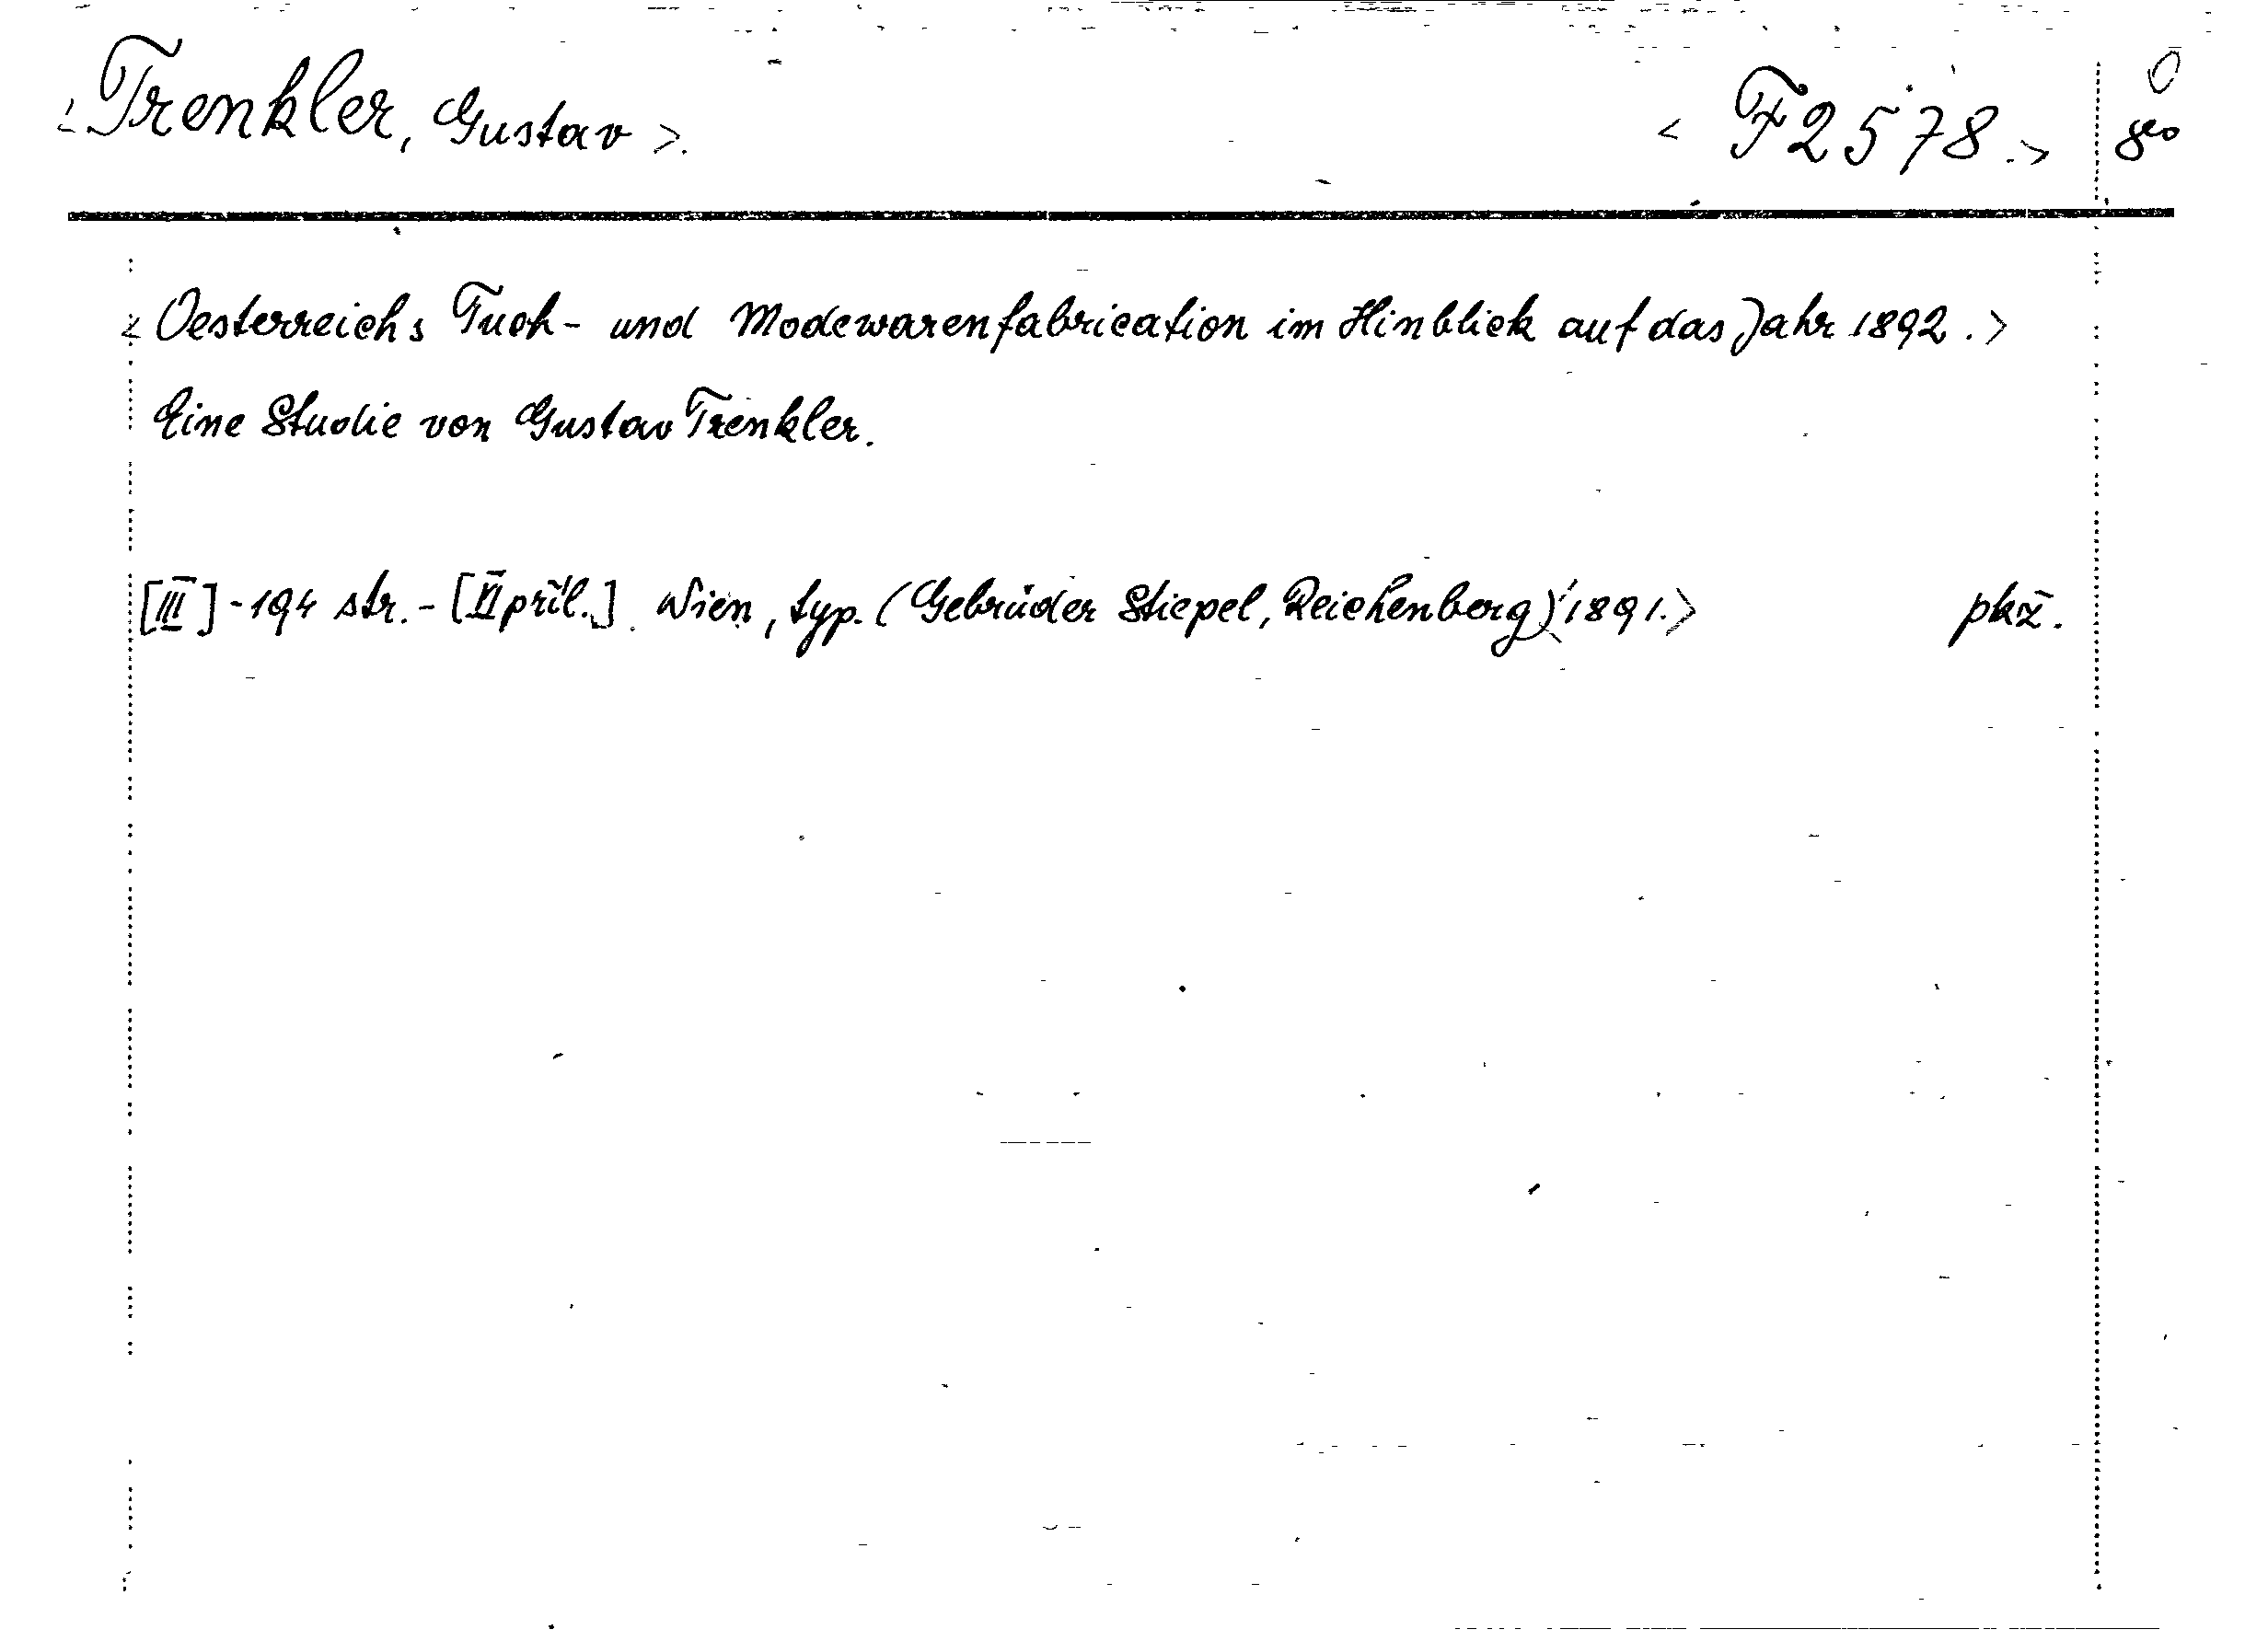 <Trenkler, Gustav>. <F 2578.> 8⁰
<Oesterreichs Tuch- und Modewarenfabrication im Hinblick auf das Jahr 1892.>
Eine Studie von Gustav Trenkler.
[III]-194 str.-[VI příl.]. Wien, typ. (Gebrüder Stiepel, Reichenberg) 1891.> pkž.